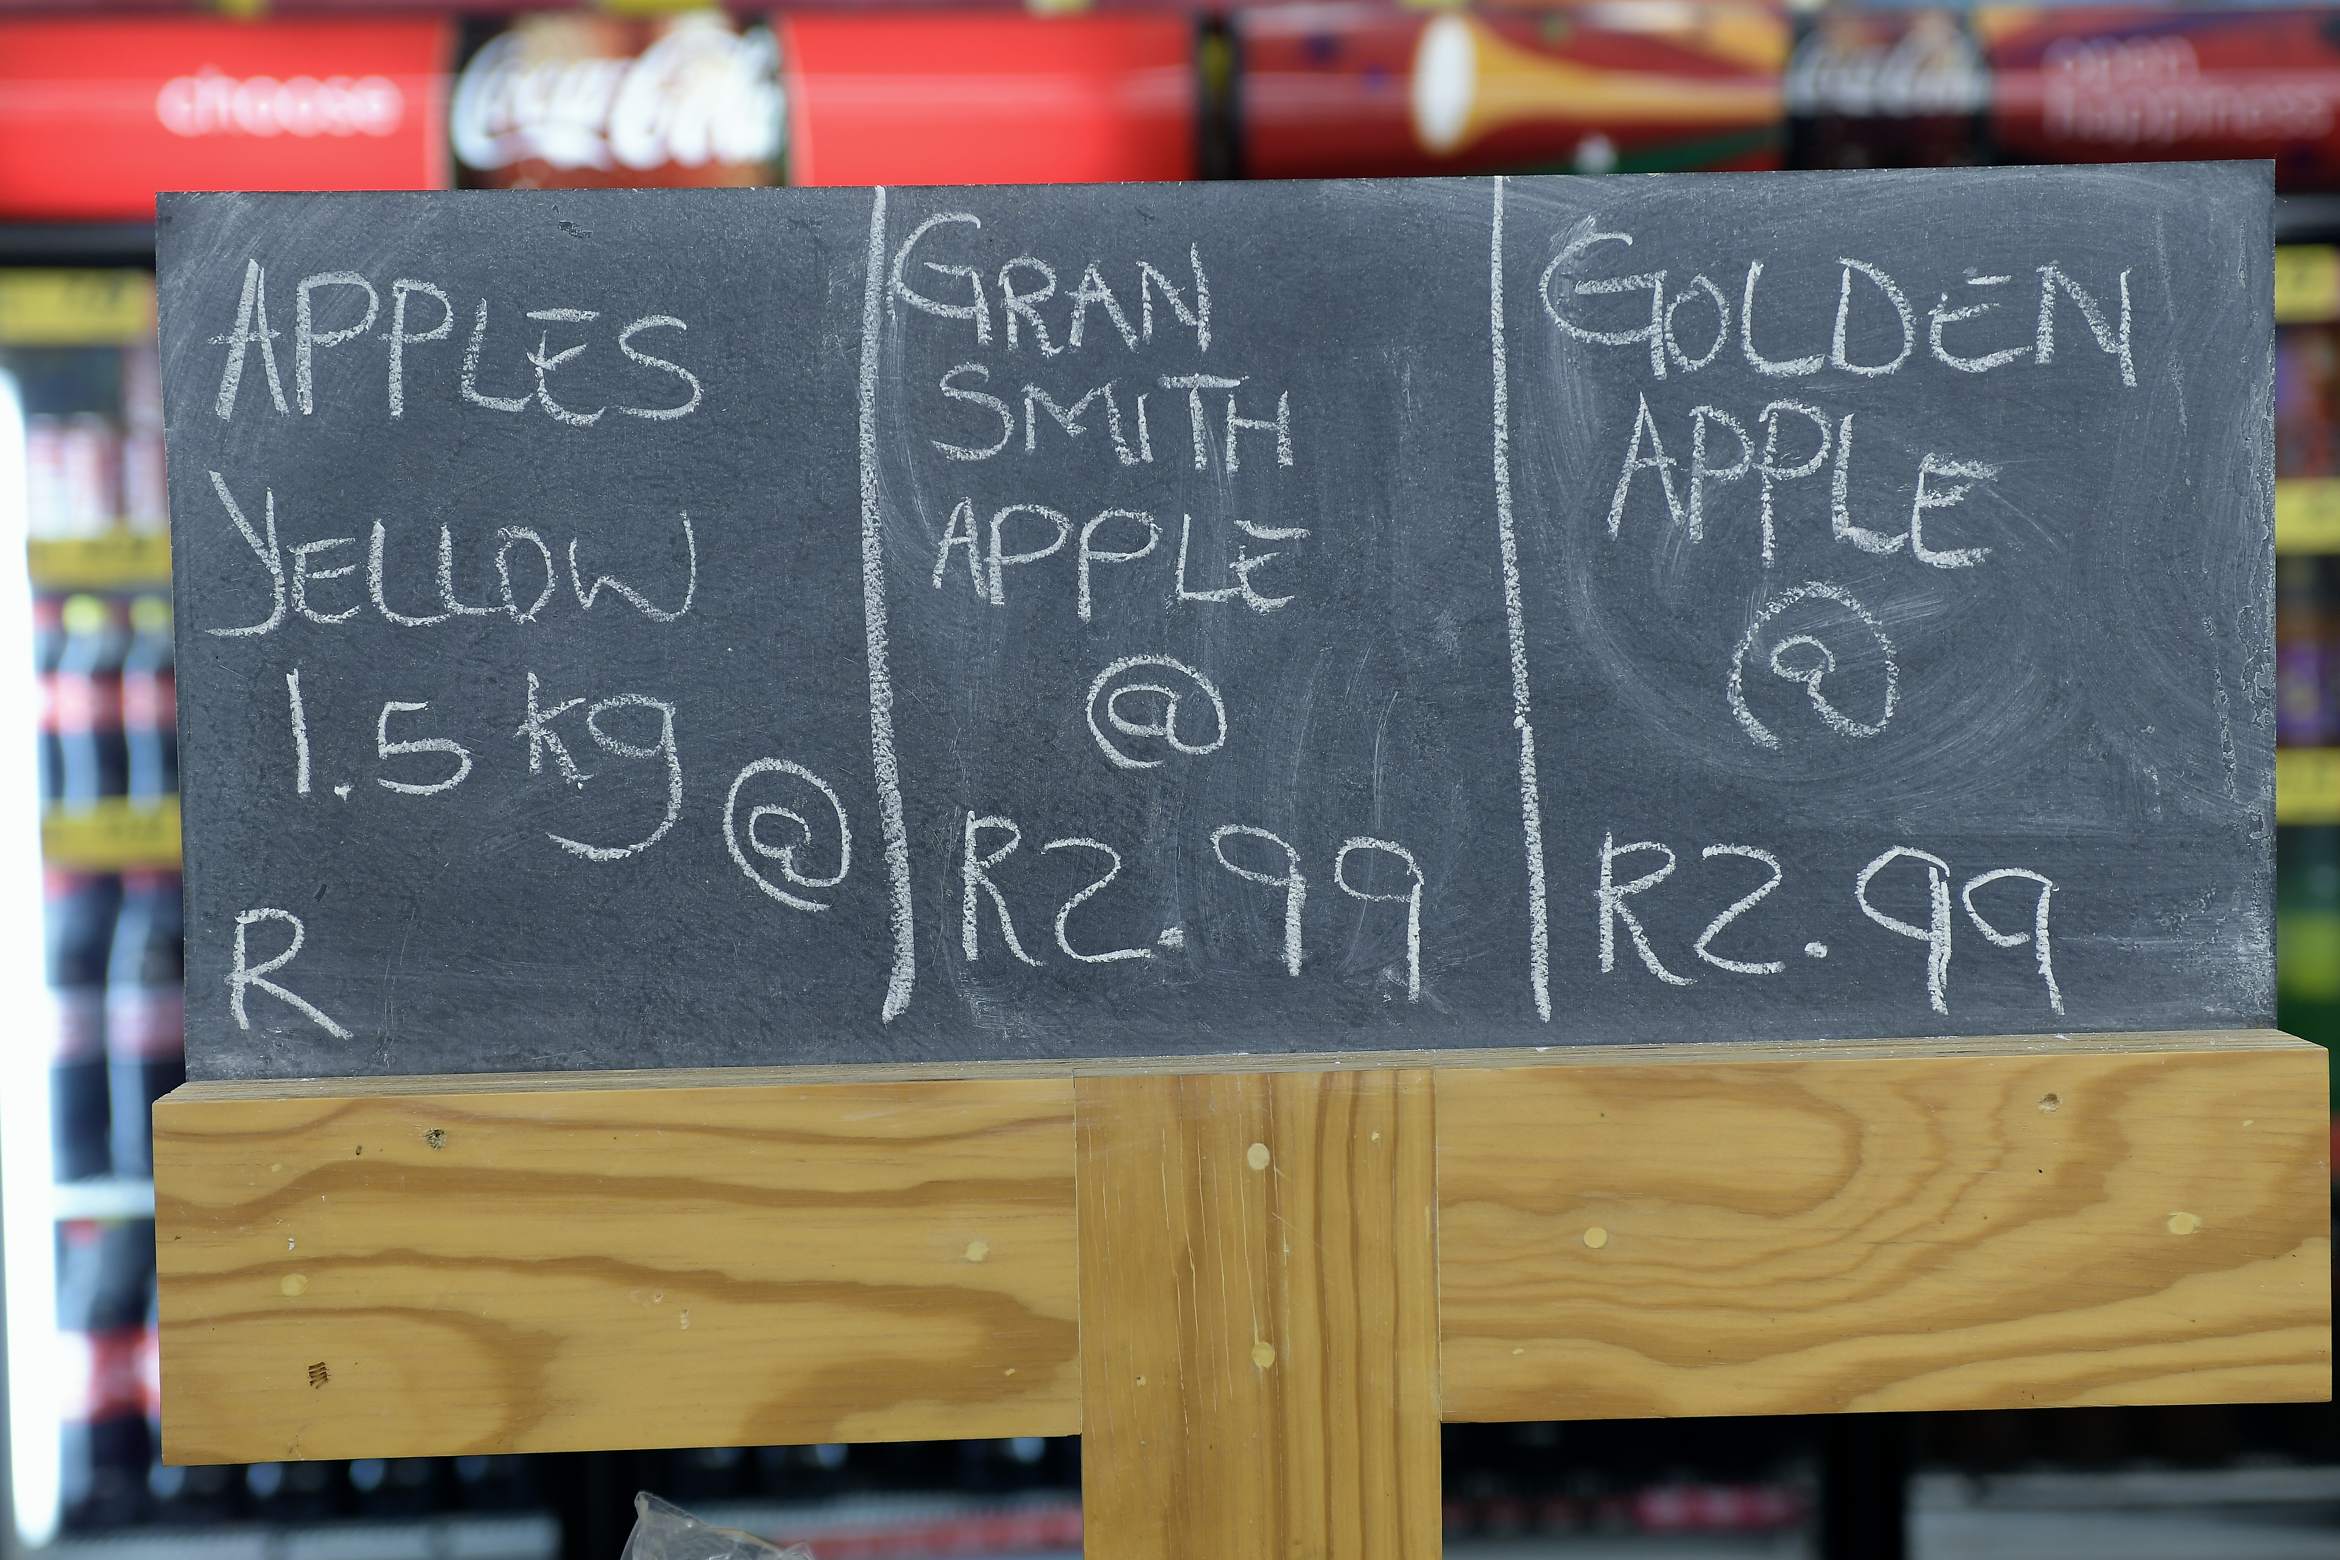 choose
Coca-Cola
Coca-Cola
open
happiness
APPLES
YELLOW
1.5 kg @
R
GRAN
SMITH
APPLE
@
R2.99
GOLDEN
APPLE
@
R2.99